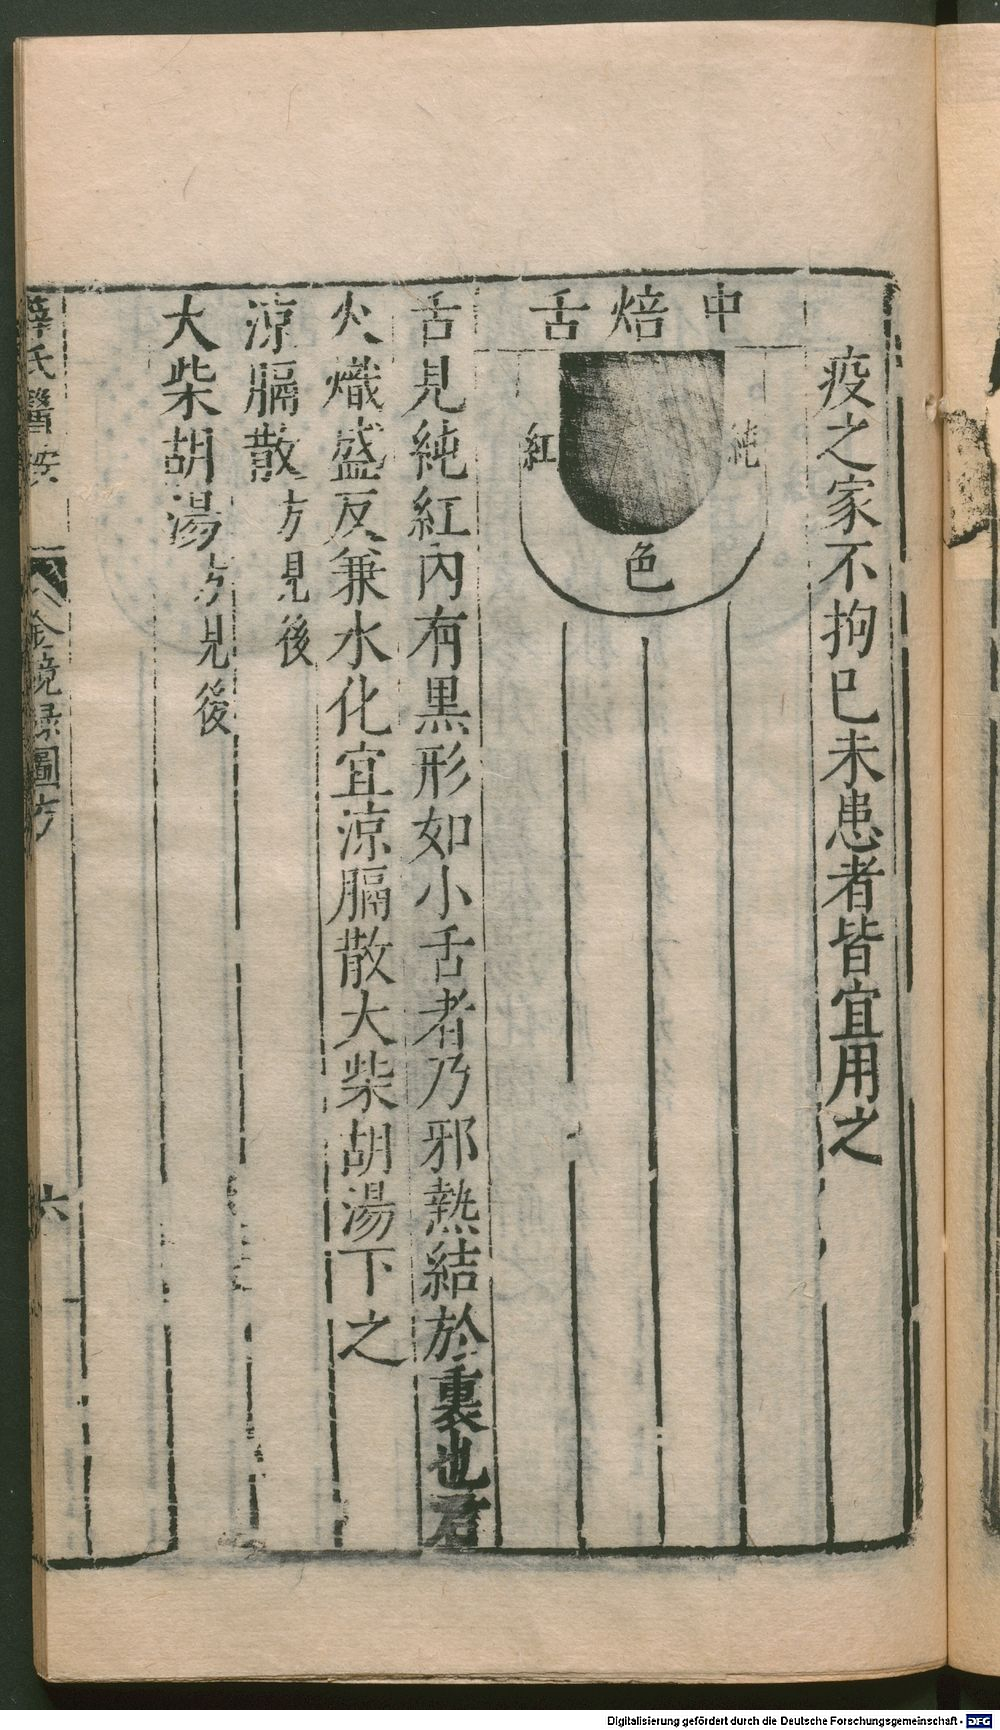 疫之家不拘已未患者皆宜用之
中焙舌
純
紅
色
舌見純紅內有黒形如小舌者乃邪熱結於裏也君
火熾盛反兼水化宜涼膈散大柴胡湯下之
涼膈散方見後
大柴胡湯方見後
薛氏醫按 金鏡錄圖方 六
Digitalisierung gefördert durch die Deutsche Forschungsgemeinschaft - DFG